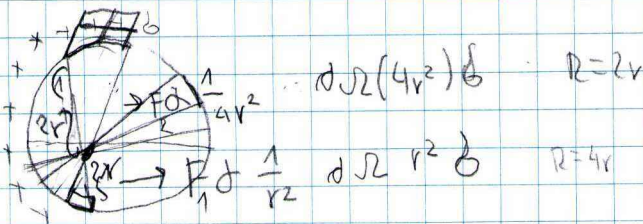 + + + + σ
+
+
+
+
2r
→ F₂ α 1/4r²
dΩ(4r²) σ
R=2r
2r → F₁ α 1/r²
dΩ r² σ
R=4r